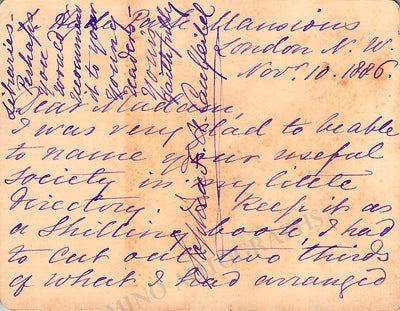 Park Mansions
London N. W.
Nov. 10. 1886.
Dear Madam,
I was very glad to be able
to name your useful
Society in my little
Directory. Keep it as
a Shilling book, I had
to cut out two thirds
of what I had arranged
Libraries -
Perhaps
you
would
recommend
it to your
young
readers -
Yours
faithfully
Caulfeild
MINO AUTOGRAPHS